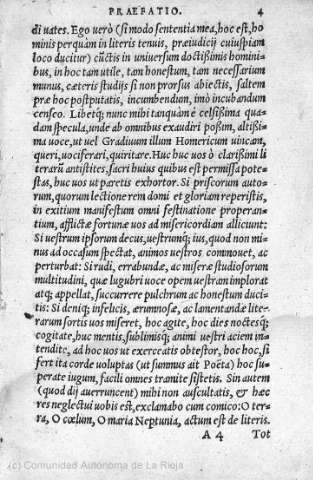 PRAEFATIO. 4
di uates. Ego uerò (si modo sententia mea, hoc est, ho
minis perquàm in literis tenuis, praeiudicij cuiuspiam
loco ducitur) cūctis in uniuersum doctißimis homini⸗
bus, in hoc tam utile, tam honestum, tam necessarium
munus, caeteris studijs si non prorsus abiectis, saltem
prae hoc postputatis, incumbendum, imò incubandum
censeo. Libetq; nunc mihi tanquàm è celsißima qua⸗
dam specula, unde ab omnibus exaudiri poßim, altißi⸗
ma uoce, ut uel Gradiuum illum Homericum uincam,
queri, uociferari, quiritare. Huc huc uos ô clarißimi li
terarū antistites, sacri huius quibus est permissa pote⸗
stas, huc uos ut paretis exhortor. Si priscorum auto⸗
rum, quorum lectione rem domi et gloriam reperistis,
in exitium manifestum omni festinatione properan⸗
tium, afflictae fortunae uos ad misericordiam alliciunt:
Si uestrum ipsorum decus, uestrumq; ius, quod non mi⸗
nus ad occasum spectat, animos uestros commouet, ac
perturbat: Si rudi, errabundae, ac miserae studiosorum
multitudini, quae lugubri uoce opem uestram implorat
atq; appellat, succurrere pulchrum ac honestum duci⸗
tis: Si deniq; infelicis, aerumnosae, ac lamentandae lite⸗
rarum sortis uos miseret, hoc agite, hoc dies noctesq;
cogitate, huc mentis, sublimisq; animi uestri aciem in⸗
tendite, ad hoc uos ut exerceatis obtestor, hoc hoc, si
fert ita corde uoluptas (ut summus ait Poëta) hoc su⸗
perate iugum, facili omnes tramite sistetis. Sin autem
(quod dij auerruncent) mihi non auscultatis, & haec
res neglectui uobis est, exclamabo cum comico: O ter⸗
ra, O coelum, O maria Neptunia, actum est de literis.
A 4 Tot
(c) Comunidad Autónoma de La Rioja